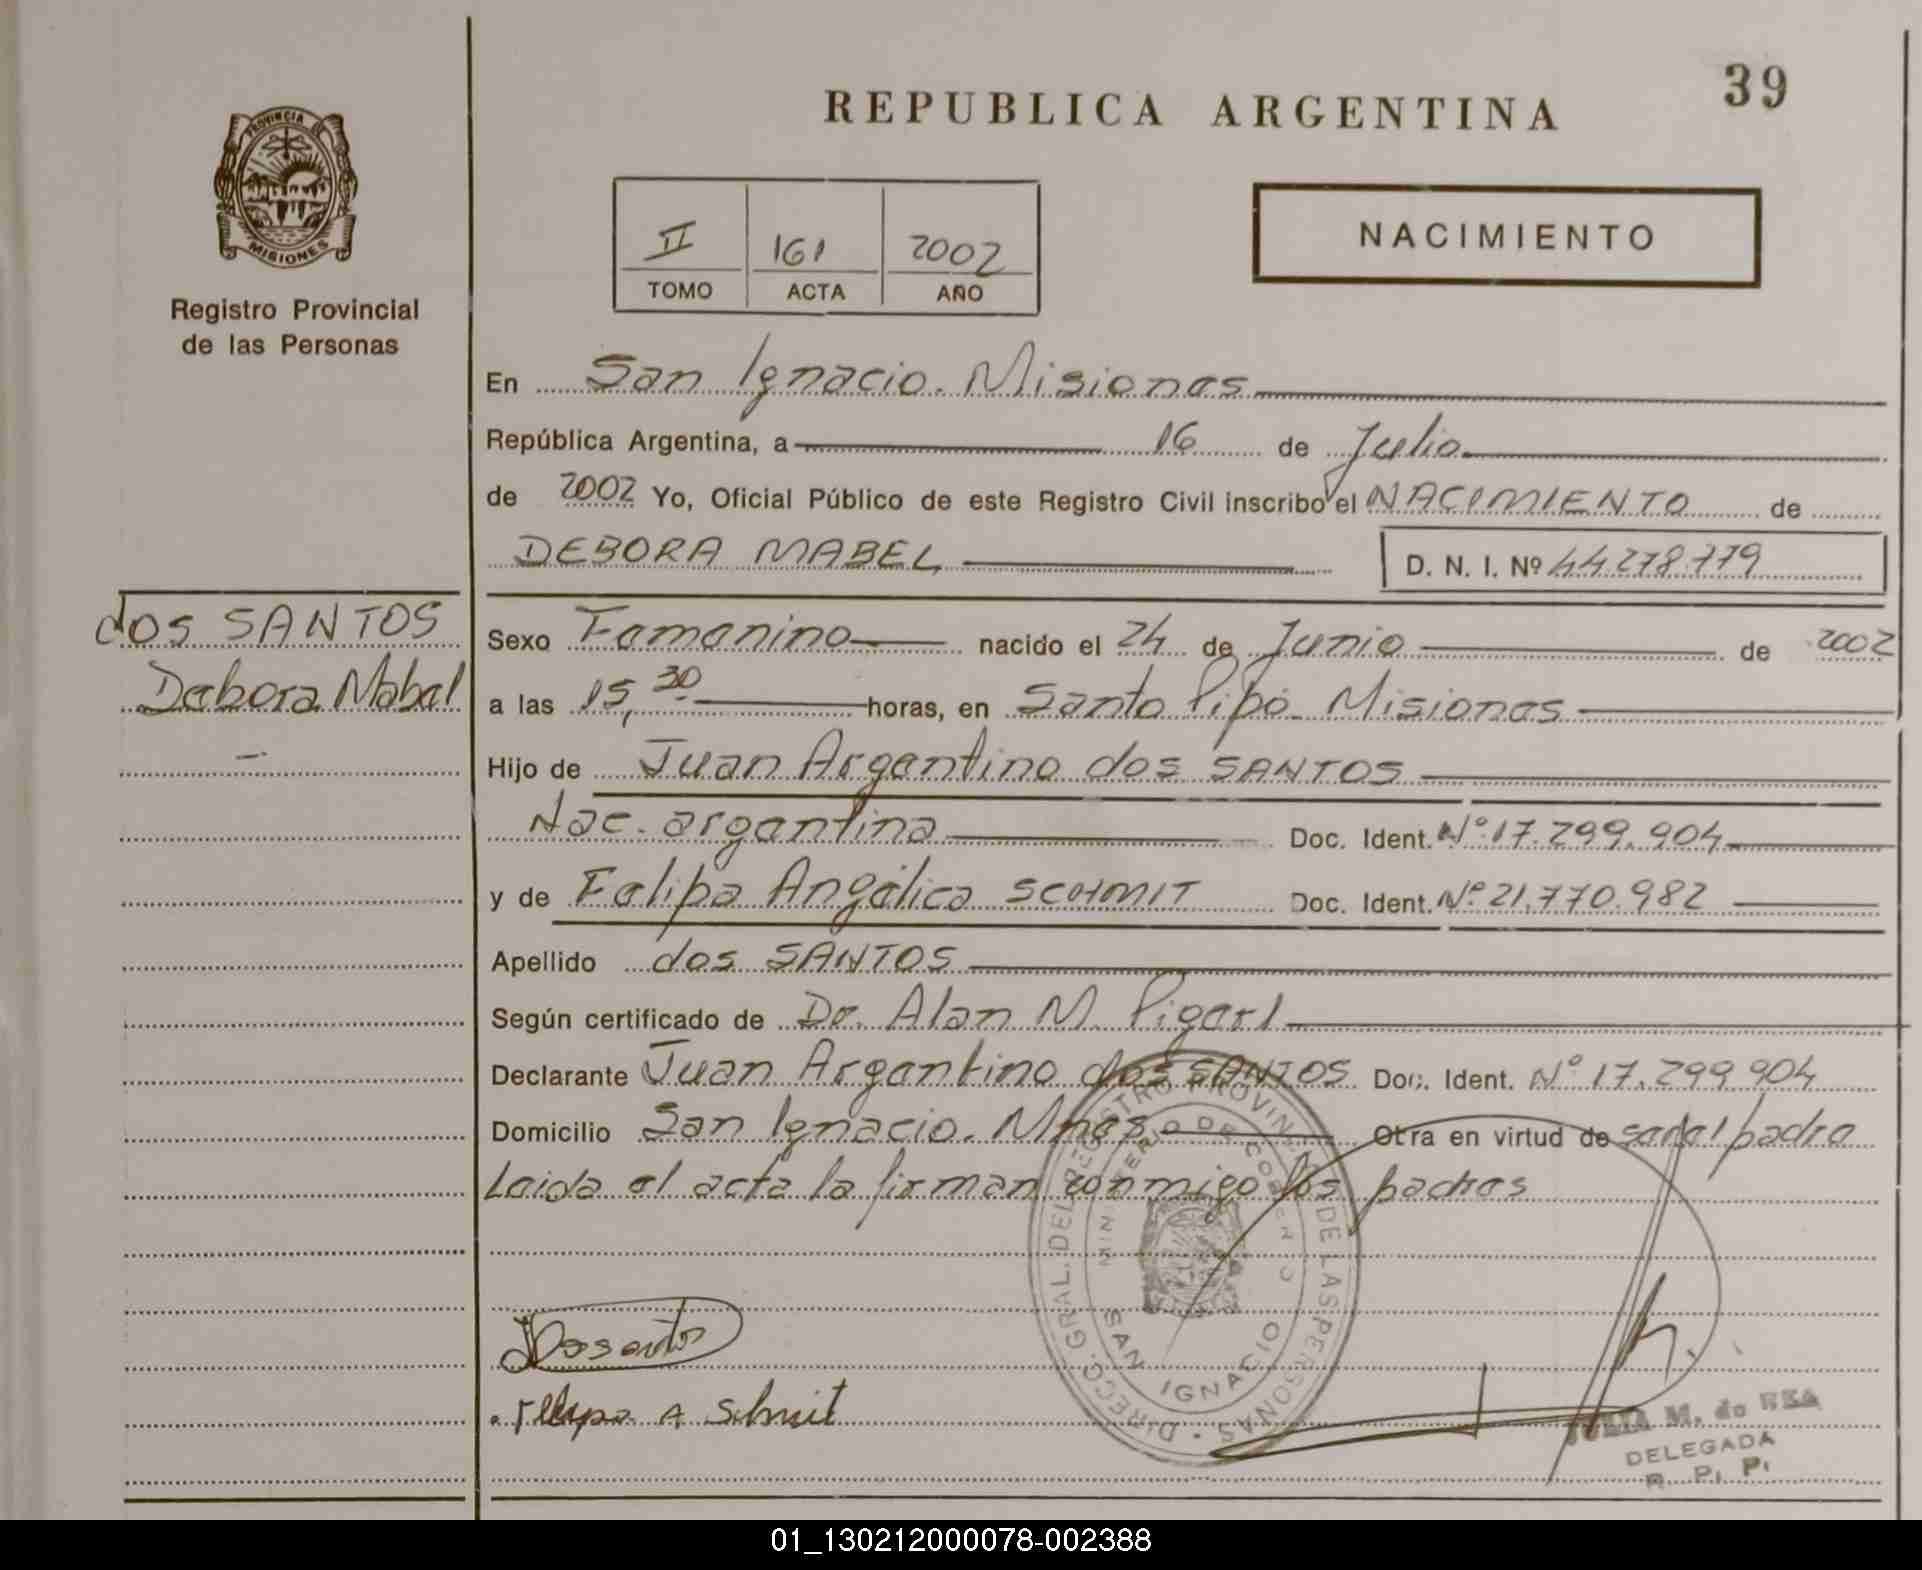 39
REPUBLICA ARGENTINA
PROVINCIA DE
MISIONES
Registro Provincial
de las Personas
II 161 2002
TOMO ACTA AÑO
NACIMIENTO
En San Ignacio. Misiones
República Argentina, a 16 de Julio
de 2002 Yo, Oficial Público de este Registro Civil inscribo el NACIMIENTO de
DEBORA MABEL D. N. I. Nº 44.278.779
dos SANTOS
Debora Mabel
Sexo Femenino nacido el 24 de Junio de 2002
a las 15,30 horas, en Santo Pipó. Misiones
Hijo de Juan Argentino dos SANTOS
Nac. argentina Doc. Ident. Nº 17.299.904
y de Felipa Angélica SCHMIT Doc. Ident. Nº 21.770.982
Apellido dos SANTOS
Según certificado de Dr. Alan M. Pigerl
Declarante Juan Argentino dos SANTOS Doc. Ident. Nº 17.299.904
Domicilio San Ignacio. Mnes Otra en virtud de ser el padre
Leida el acta la firman conmigo los padres
DIRECC. GRAL. DEL REGISTRO PROVINCIAL DE LAS PERSONAS
MINISTERIO DE GOBIERNO
SAN IGNACIO
Felipa A Schmit
M. de REA
DELEGADA
R. P. P.
01_130212000078-002388